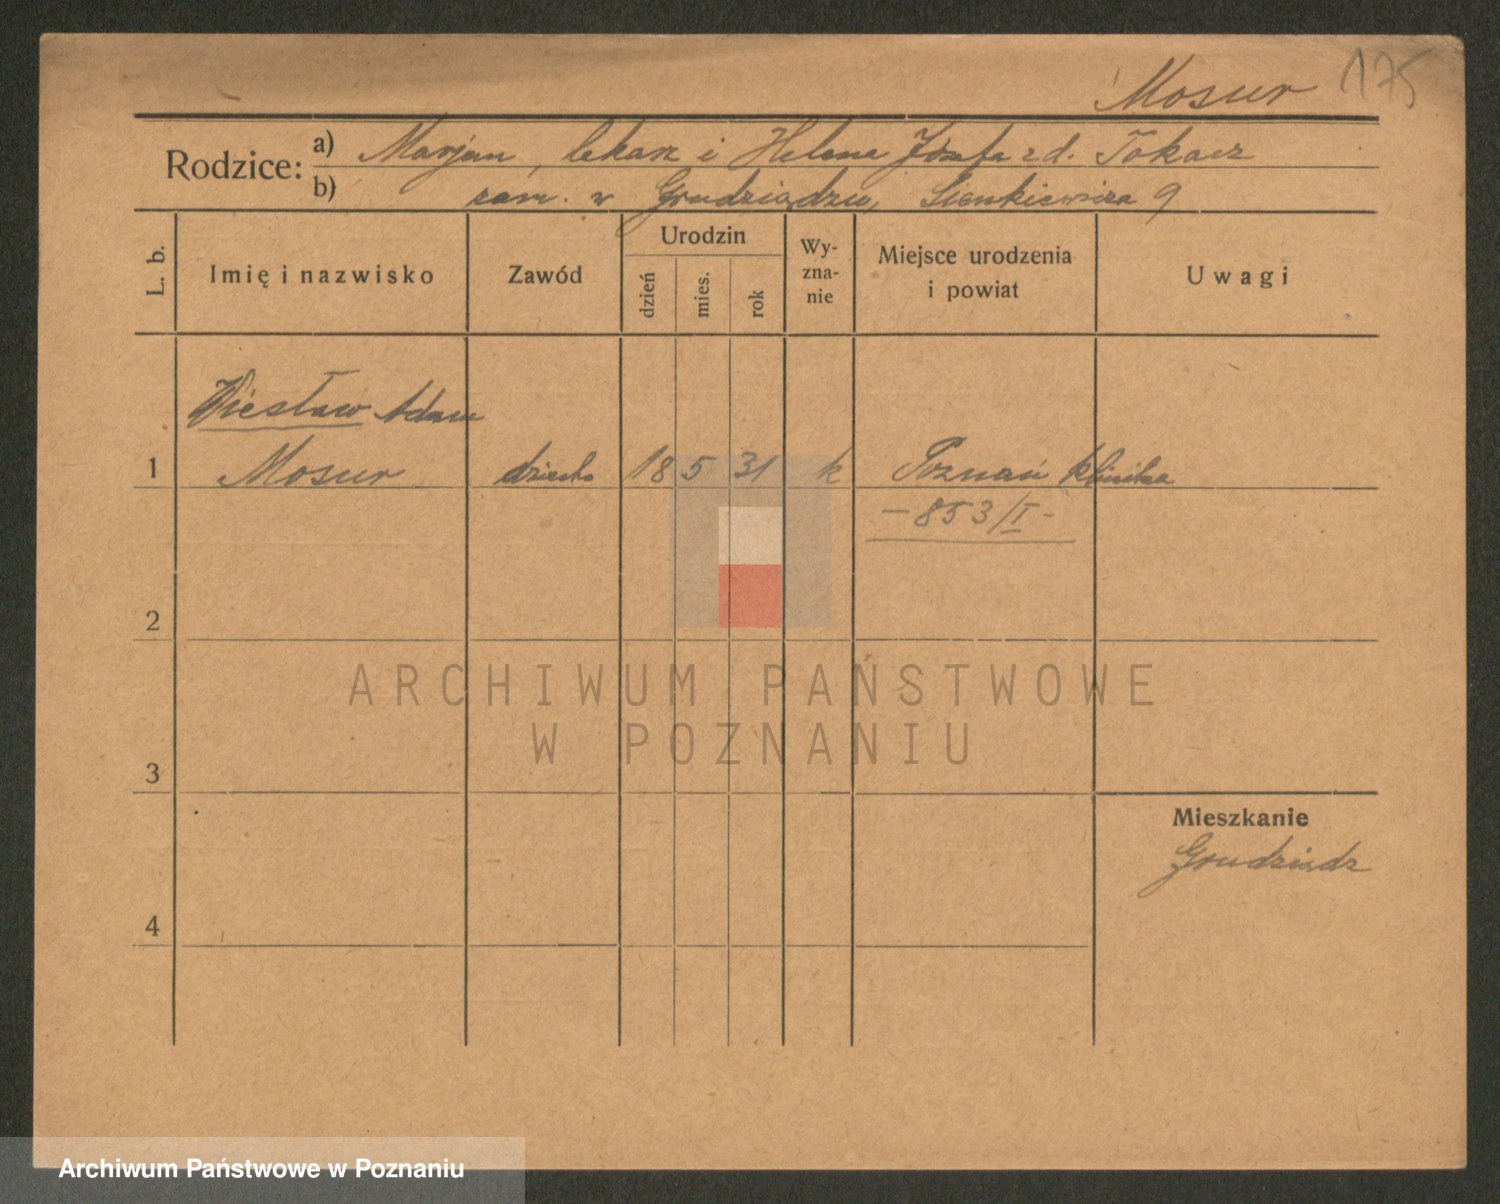 Mosur 175
Rodzice: a) Marjan, lekarz i Helena Józefa z d. Tokarz
b) zam. w Grudziądzu, Sienkiewicza 9
L. b.
Imię i nazwisko
Zawód
Urodzin
dzień
mies.
rok
Wy-
zna-
nie
Miejsce urodzenia
i powiat
Uwagi
Wiesław Adam
1 Mosur dziecko 18 5 31 k Poznań klinika
- 853/I -
2
ARCHIWUM PAŃSTWOWE
W POZNANIU
3
Mieszkanie
Grudziądz
4
Archiwum Państwowe w Poznaniu